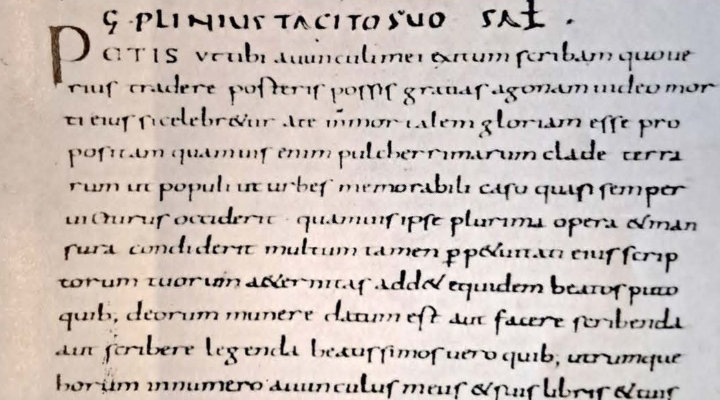 Ç PLINIUS TACITO SUO SAŁ .
PETIS ut tibi avunculi mei exitum scribam quo ve
rius tradere posteris possis gratias ago nam video mor
ti eius si celebr&ur a te inmortalem gloriam esse pro
positam quamvis enim pulcherrimarum clade terra
rum ut populi ut urbes memorabili casu quasi semper
victurus occiderit · quamvis ipse plurima opera & man
sura condiderit multum tamen ꝑp&uitati eius scrip
torum tuorum a&ernitas add& equidem beatos puto
quib; deorum munere datum est aut facere scribenda
aut scribere legenda beatissimos vero quib; utrumque
horum in numero avunculus meus & suis libris & tuis